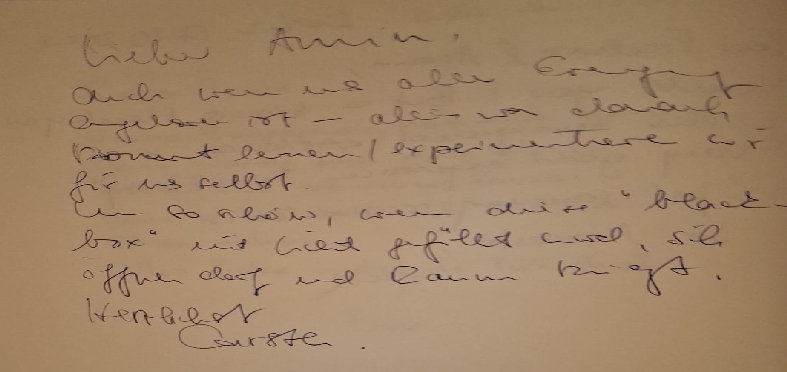 Lieber Armin,
auch wenn uns alle
ist – alles was danach
kommt lernen / experimentieren wir
für uns selbst.
Um so schöner, wenn diese "black-
box" mit Licht gefüllt wird, sich
öffnen darf und Raum kriegt.
Herzlichst
Carsten.